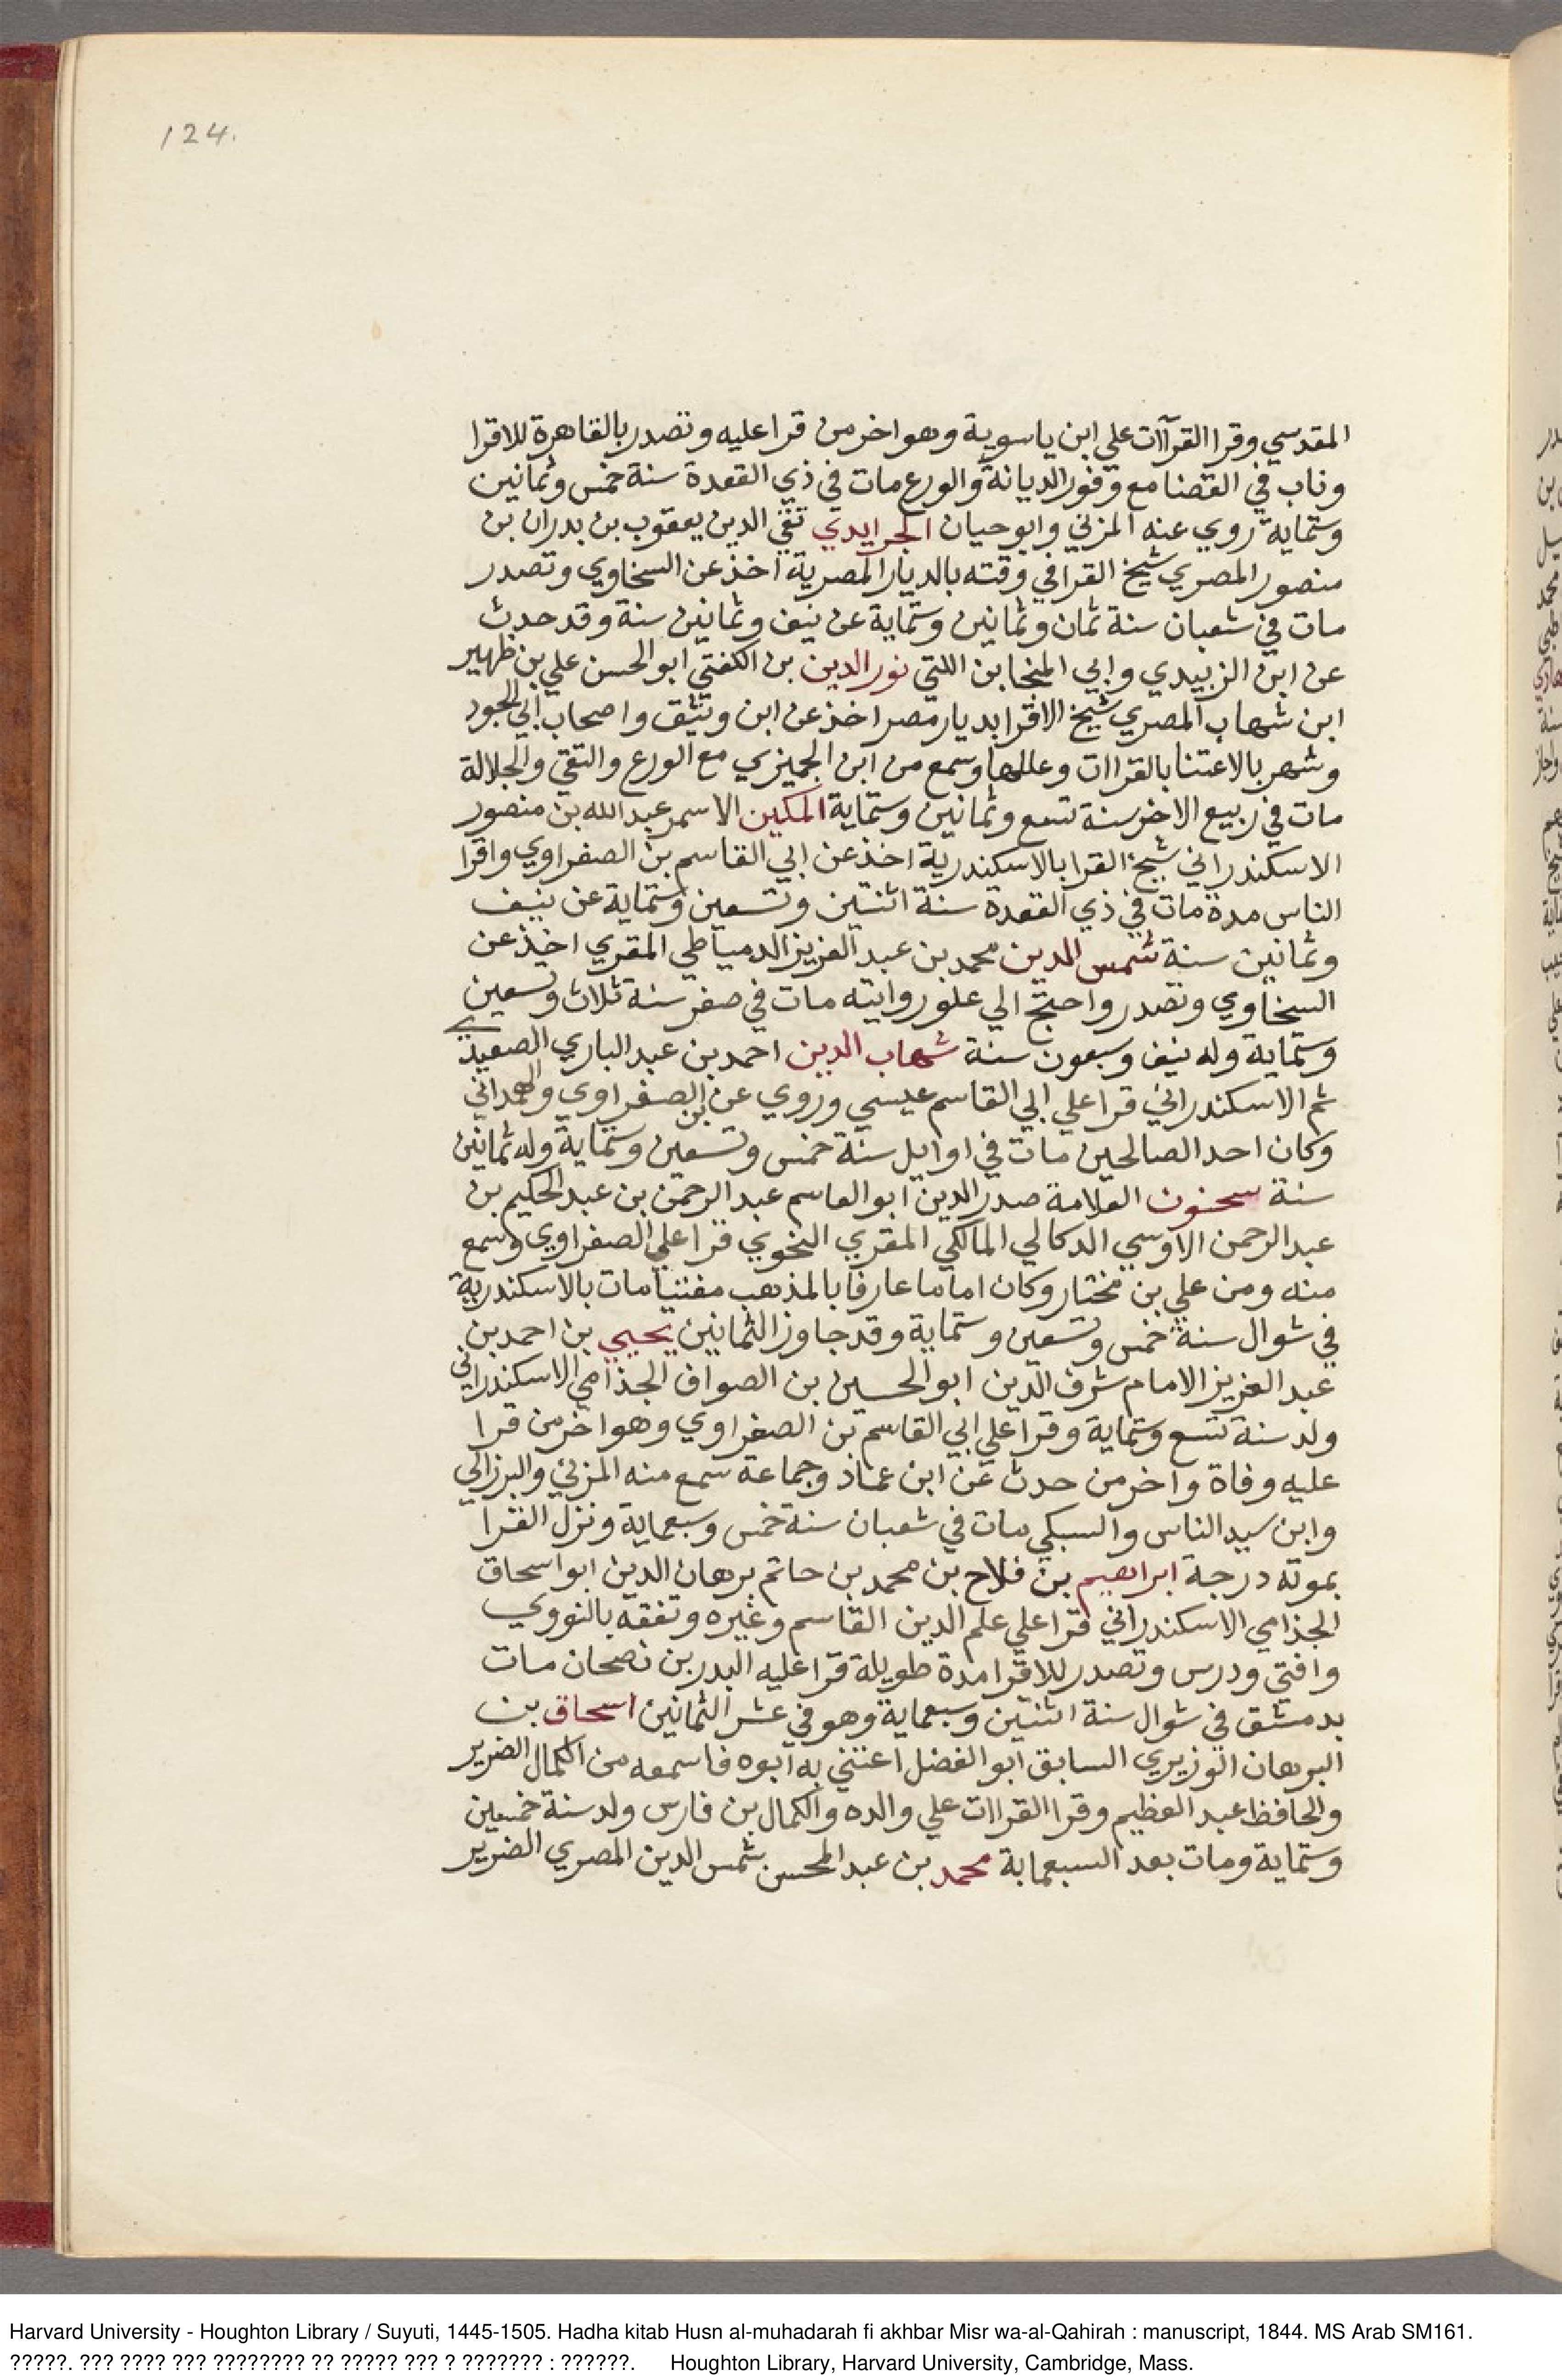 124.
المقدسي وقرا القرآآت علي ابن ياسوية وهو اخر من قرا عليه وتصدر بالقاهرة للاقرا
وناب في القضا مع وفور الديانة والورع مات في ذي القعدة سنة خمس وثمانين
وستماية روي عنه المزني وابو حيان الجرايدي تقي الدين يعقوب بن بدران بن
منصور المصري شيخ القرا في وقته بالديار المصرية اخذ عن السخاوي وتصدر
مات في شعبان سنة ثمان وثمانين وستماية عن نيف وثمانين سنة وقد حدث
عن ابن الزبيدي وابي المنجا بن اللتي نور الدين بن الكفتي ابو الحسن علي بن ظهير
ابن شهاب المصري شيخ الاقرا بديار مصر اخذ عن ابن وثيق واصحاب ابي الجود
وشهر بالاعتنا بالقراات وعللها وسمع من ابن الجميزي مع الورع والتقي والجلالة
مات في ربيع الاخر سنة تسع وثمانين وستماية المكين الاسمر عبد الله بن منصور
الاسكندراني شيخ القرا بالاسكندرية اخذ عن ابي القاسم بن الصفراوي واقرا
الناس مدة مات في ذي القعدة سنة اثنتين وتسعين وستماية عن نيف
وثمانين سنة شمس الدين محمد بن عبد العزيز الدمياطي المقري اخذ عن
السخاوي وتصدر واحتج الي علو روايته مات في صفر سنة ثلاث وتسعين
وستماية وله نيف وسبعون سنة شهاب الدين احمد بن عبد الباري الصعيدي
ثم الاسكندراني قرا علي ابي القاسم عيسي وروي عن بن الصفراوي والهمداني
وكان احد الصالحين مات في اوايل سنة خمس وتسعين وستماية وله ثمانين
سنة سحنون العلامة صدر الدين ابو القاسم عبد الرحمن بن عبد الحكيم بن
عبد الرحمن الاوسي الدكالي المالكي المقري النحوي قرا علي الصفراوي وسمع
منه ومن علي بن مختار وكان اماما عارفا بالمذهب مفتيا مات بالاسكندرية
في شوال سنة خمس وتسعين وستماية وقد جاوز الثمانين يحيي بن احمد بن
عبد العزيز الامام شرف الدين ابو الحسين بن الصواف الجذامي الاسكندراني
ولد سنة تسع وستماية وقرا علي ابي القاسم بن الصفراوي وهو اخر من قرا
عليه وفاة واخر من حدث عن ابن عماد وجماعة سمع منه المزني والبرزالي
وابن سيد الناس والسبكي مات في شعبان سنة خمس وسبعماية ونزل القرا
بموته درجة ابراهيم بن فلاح بن محمد بن حاتم برهان الدين ابو اسحاق
الجذامي الاسكندراني قرا علي علم الدين القاسم وغيره وتفقه بالنووي
وافتي ودرس وتصدر للاقرا مدة طويلة قرا عليه البدر بن نصحان مات
بدمشق في شوال سنة اثنتين وسبعماية وهو في عشر الثمانين اسحاق بن
البرهان الوزيري السابق ابو الفضل اعتني به ابوه فاسمعه من الكمال الضرير
والحافظ عبد العظيم وقرا القراات علي والده والكمال بن فارس ولد سنة خمسين
وستماية ومات بعد السبعماية محمد بن عبد المحسن شمس الدين المصري الضرير
Harvard University - Houghton Library / Suyuti, 1445-1505. Hadha kitab Husn al-muhadarah fi akhbar Misr wa-al-Qahirah : manuscript, 1844. MS Arab SM161.
?????. ??? ???? ??? ???????? ?? ????? ??? ? ??????? : ??????. Houghton Library, Harvard University, Cambridge, Mass.